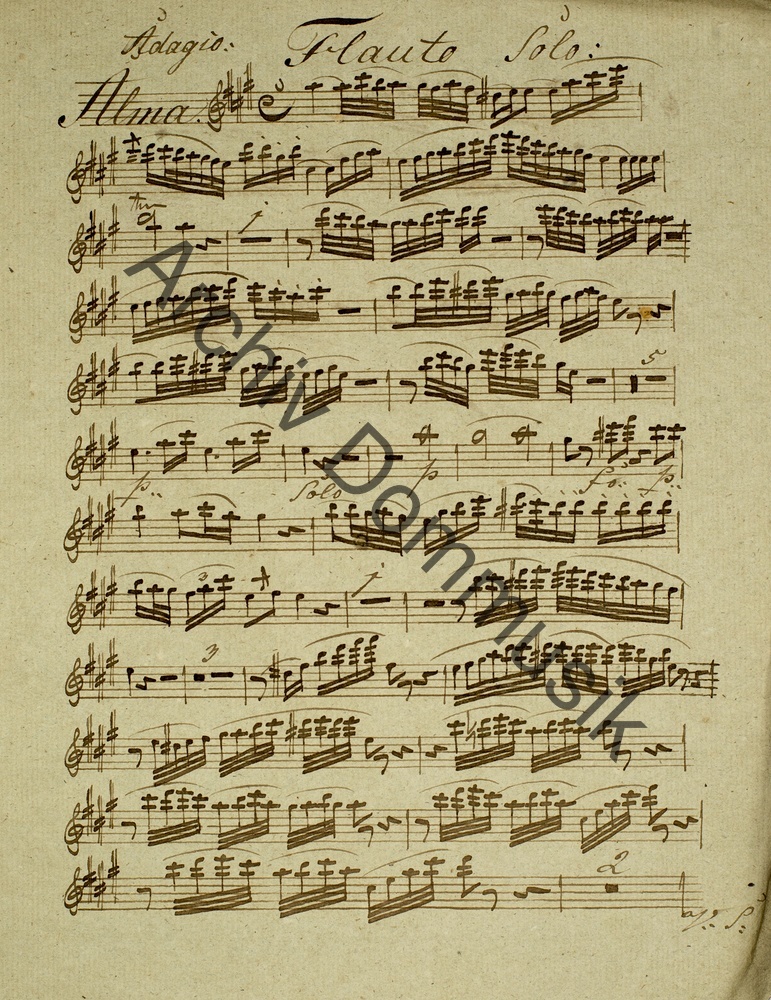 Adagio: Flauto Solo:
Alma.
tr
1
5
p.. Solo p fo: p..
3
1
3
2
Archiv Dommusik